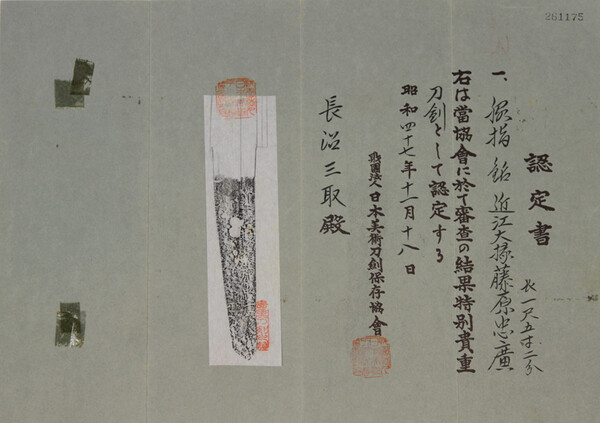 261175
認定書
一、脇指 銘 近江大掾藤原忠廣
長一尺五寸二分
右は當協會に於て審査の結果特別貴重
刀劍として認定する
昭和四十七年十一月十八日
財團法人日本美術刀劍保存協會
長沼三取殿